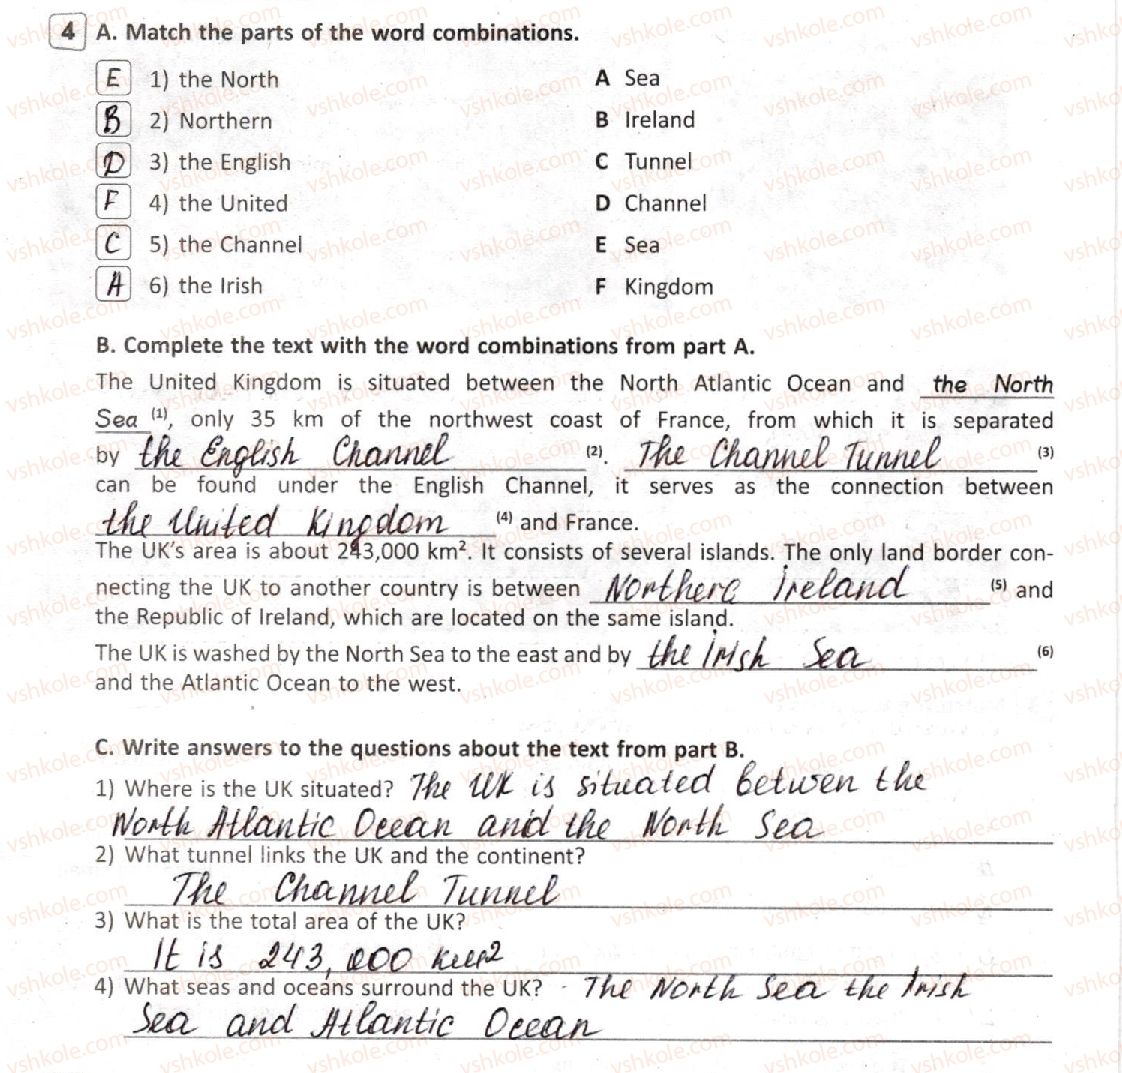 4 A. Match the parts of the word combinations.
E 1) the North A Sea
B 2) Northern B Ireland
D 3) the English C Tunnel
F 4) the United D Channel
C 5) the Channel E Sea
A 6) the Irish F Kingdom
B. Complete the text with the word combinations from part A.
The United Kingdom is situated between the North Atlantic Ocean and the North
Sea (1), only 35 km of the northwest coast of France, from which it is separated
by the English Channel (2). The Channel Tunnel (3)
can be found under the English Channel, it serves as the connection between
the United Kingdom (4) and France.
The UK's area is about 243,000 km². It consists of several islands. The only land border con-
necting the UK to another country is between Northern Ireland (5) and
the Republic of Ireland, which are located on the same island.
The UK is washed by the North Sea to the east and by the Irish Sea (6)
and the Atlantic Ocean to the west.
C. Write answers to the questions about the text from part B.
1) Where is the UK situated? The UK is situated betwen the
North Atlantic Ocean and the North Sea
2) What tunnel links the UK and the continent?
The Channel Tunnel
3) What is the total area of the UK?
It is 243,000 км2
4) What seas and oceans surround the UK? - The North Sea the Irish
Sea and Atlantic Ocean
vshkole.com